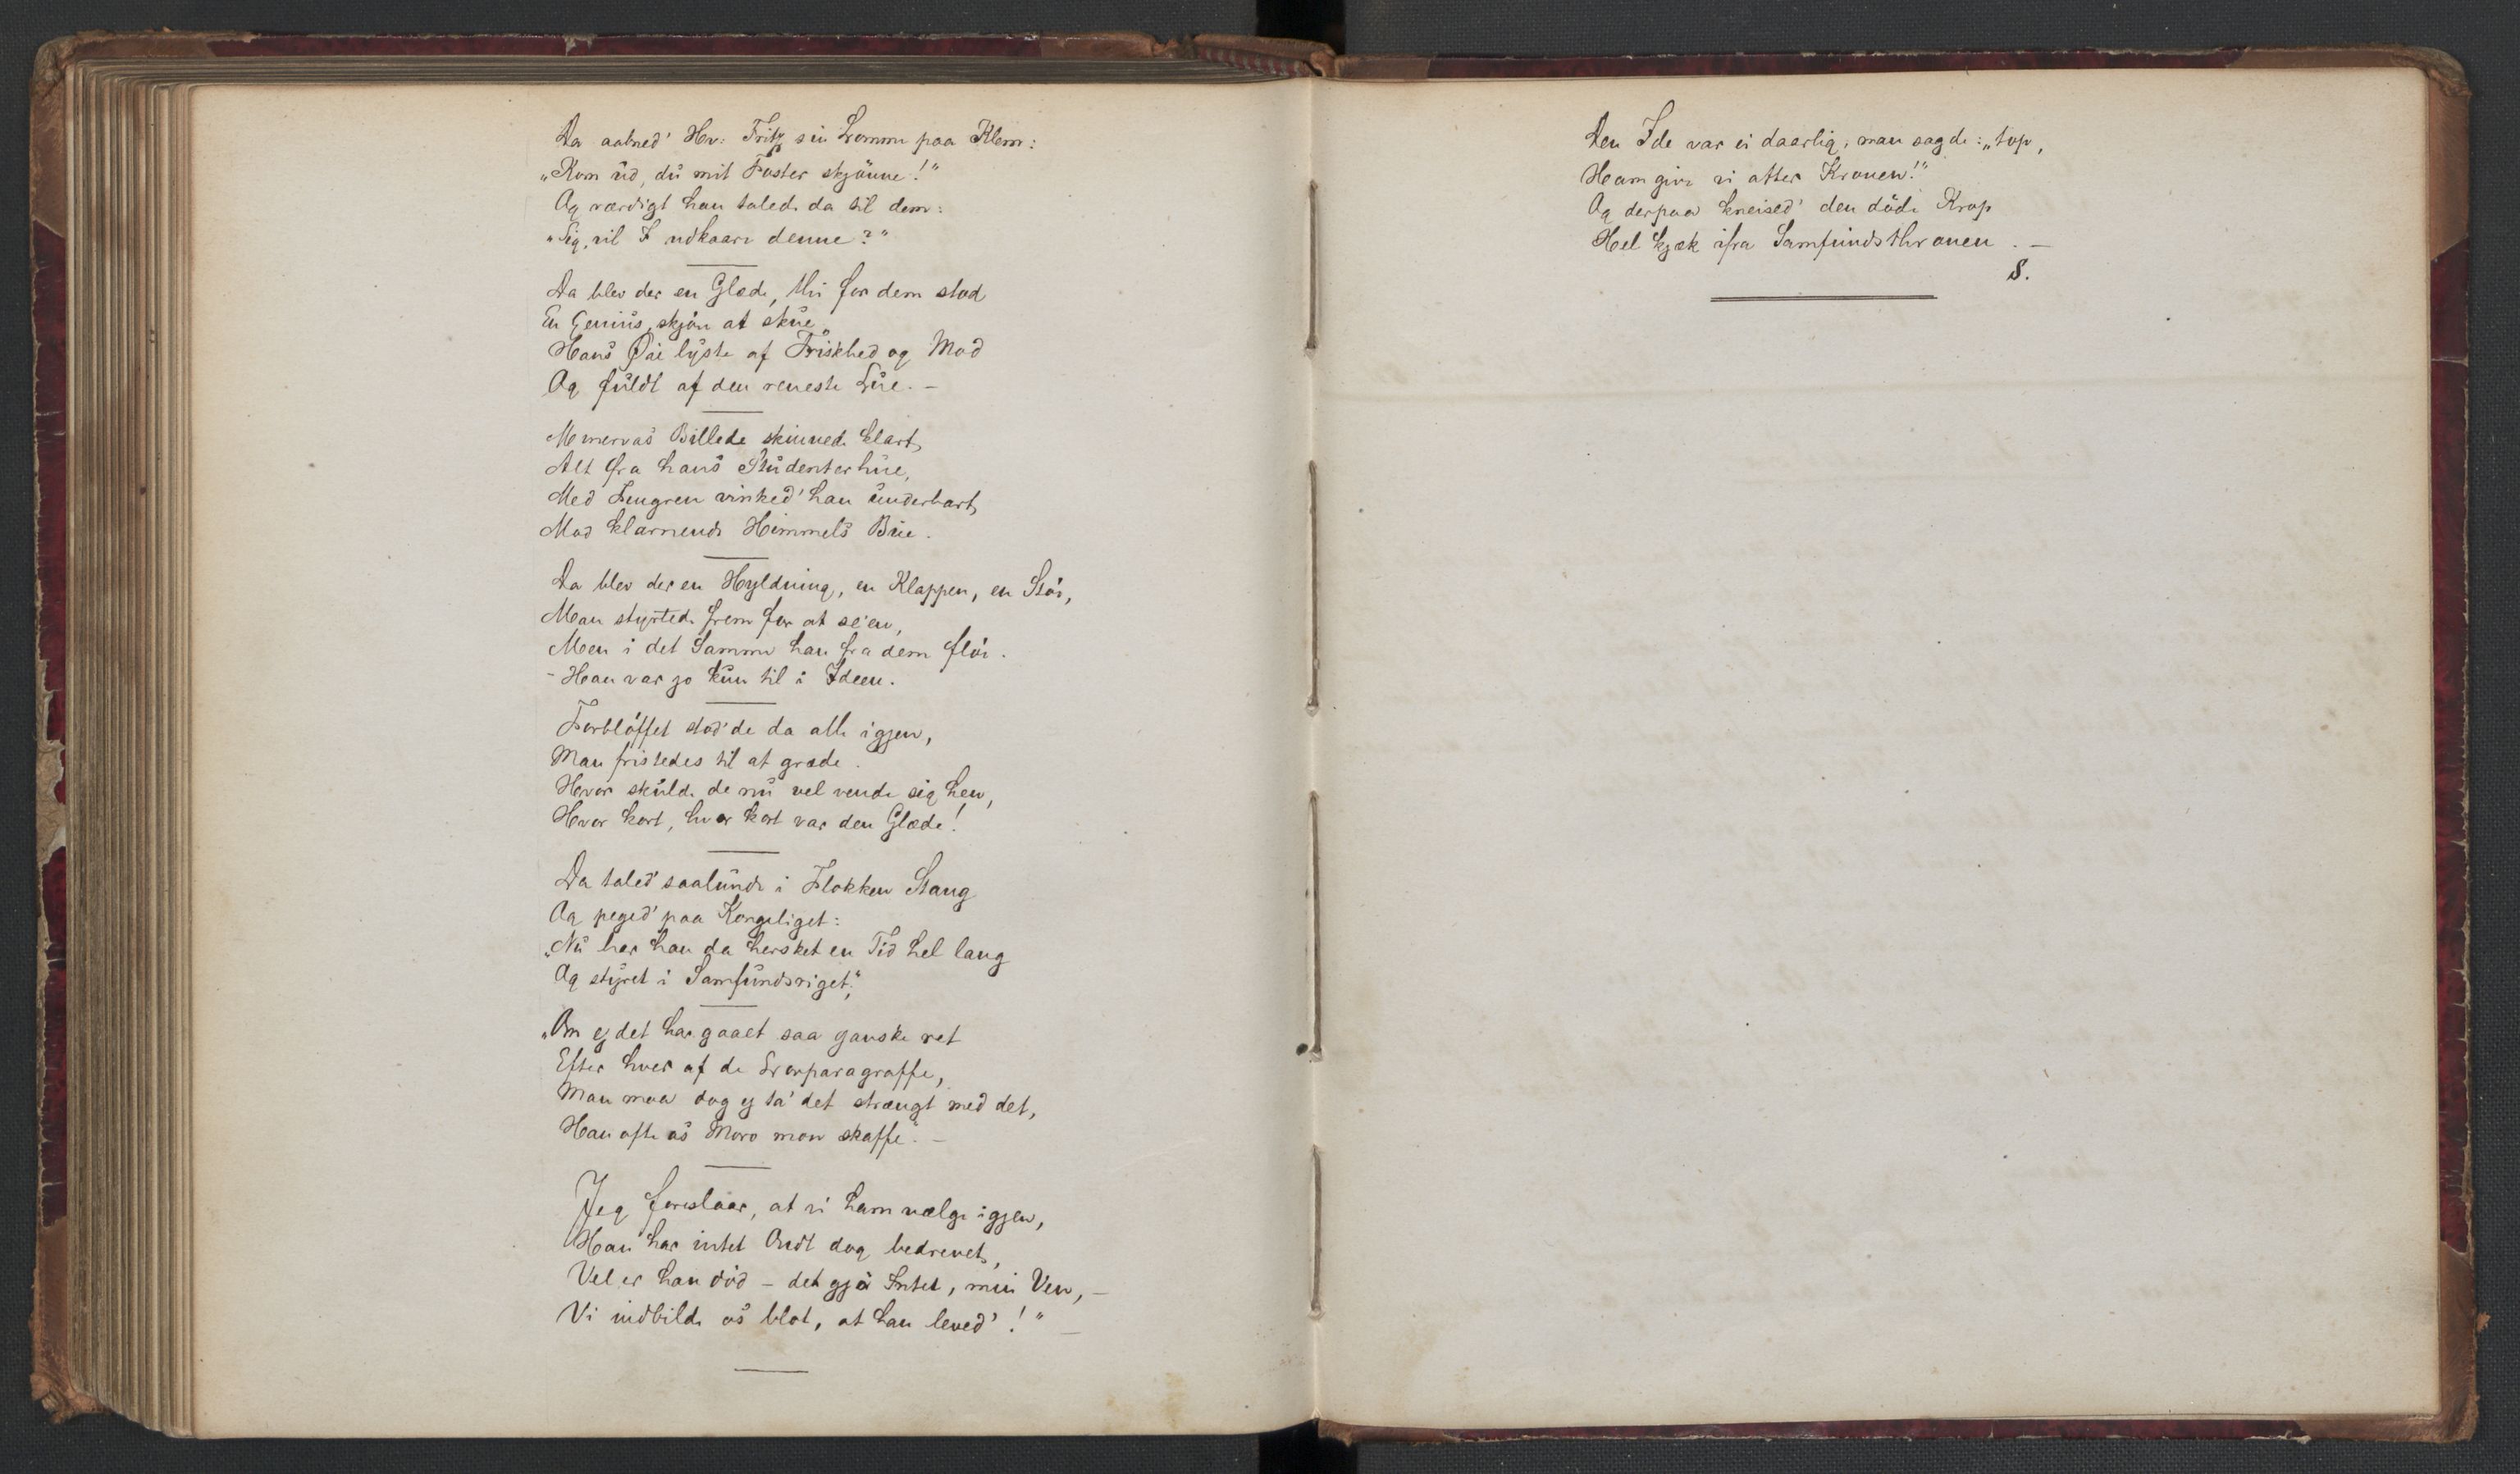 Da aabned' Hr: Fritz sin Lomme paa Klem:
„Kom ud, du mit Foster skjønne!"
Og værdigt han talede da til dem:
„Sig, vil I udkaare denne?"
Da blev der en Glæde, thi for dem stod
En Genius, skjøn at skue,
Hans Øie lyste af Friskhed og Mod
Og fuldt af den reneste Lue. –
Minervas Billede skinnede klart,
Alt fra hans Studenterhue,
Med Fingren vinked' han underbart,
Mod klarnende Himmels Bue.
Da blev der en Hyldning, en Klappen, en Støi,
Man styrtede frem for at se'en,
Men i det Samme han fra dem fløi.
– Han var jo kun til i Ideen.
Forbløffet stod' de da alle igjen,
Man fristedes til at græde.
Hvor skulde de nu vel vende sig hen,
Hvor kort, hvor kort var den Glæde!
Da taled' saalunde i Flokken Stang
Og peged' paa Kongeliget:
„Nu har han da hersket en Tid hel lang
Og styret i Samfundsriget",
„Om ej det har gaaet saa ganske ret
Efter hver af de Lovparagraffe,
Man maa dog ej ta' det strængt med det,
Han ofte os Moro mon skaffe". –
Jeg foreslaar, at vi ham vælge igjen,
Han har intet Ondt dog bedrevet,
Vel er han død – det gjø Intet, min Ven, –
Vi indbilde os blot, at han leved'!" –
Den Ide var ei daarlig, man sagde: „top,
Ham give vi atter Kronen!"
Og derpaa kneised' den døde Krop
Hel kjæk ifra Samfundsthronen. –
S.